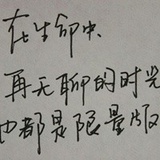 在生命中、
再无聊的时光
也都是限量版